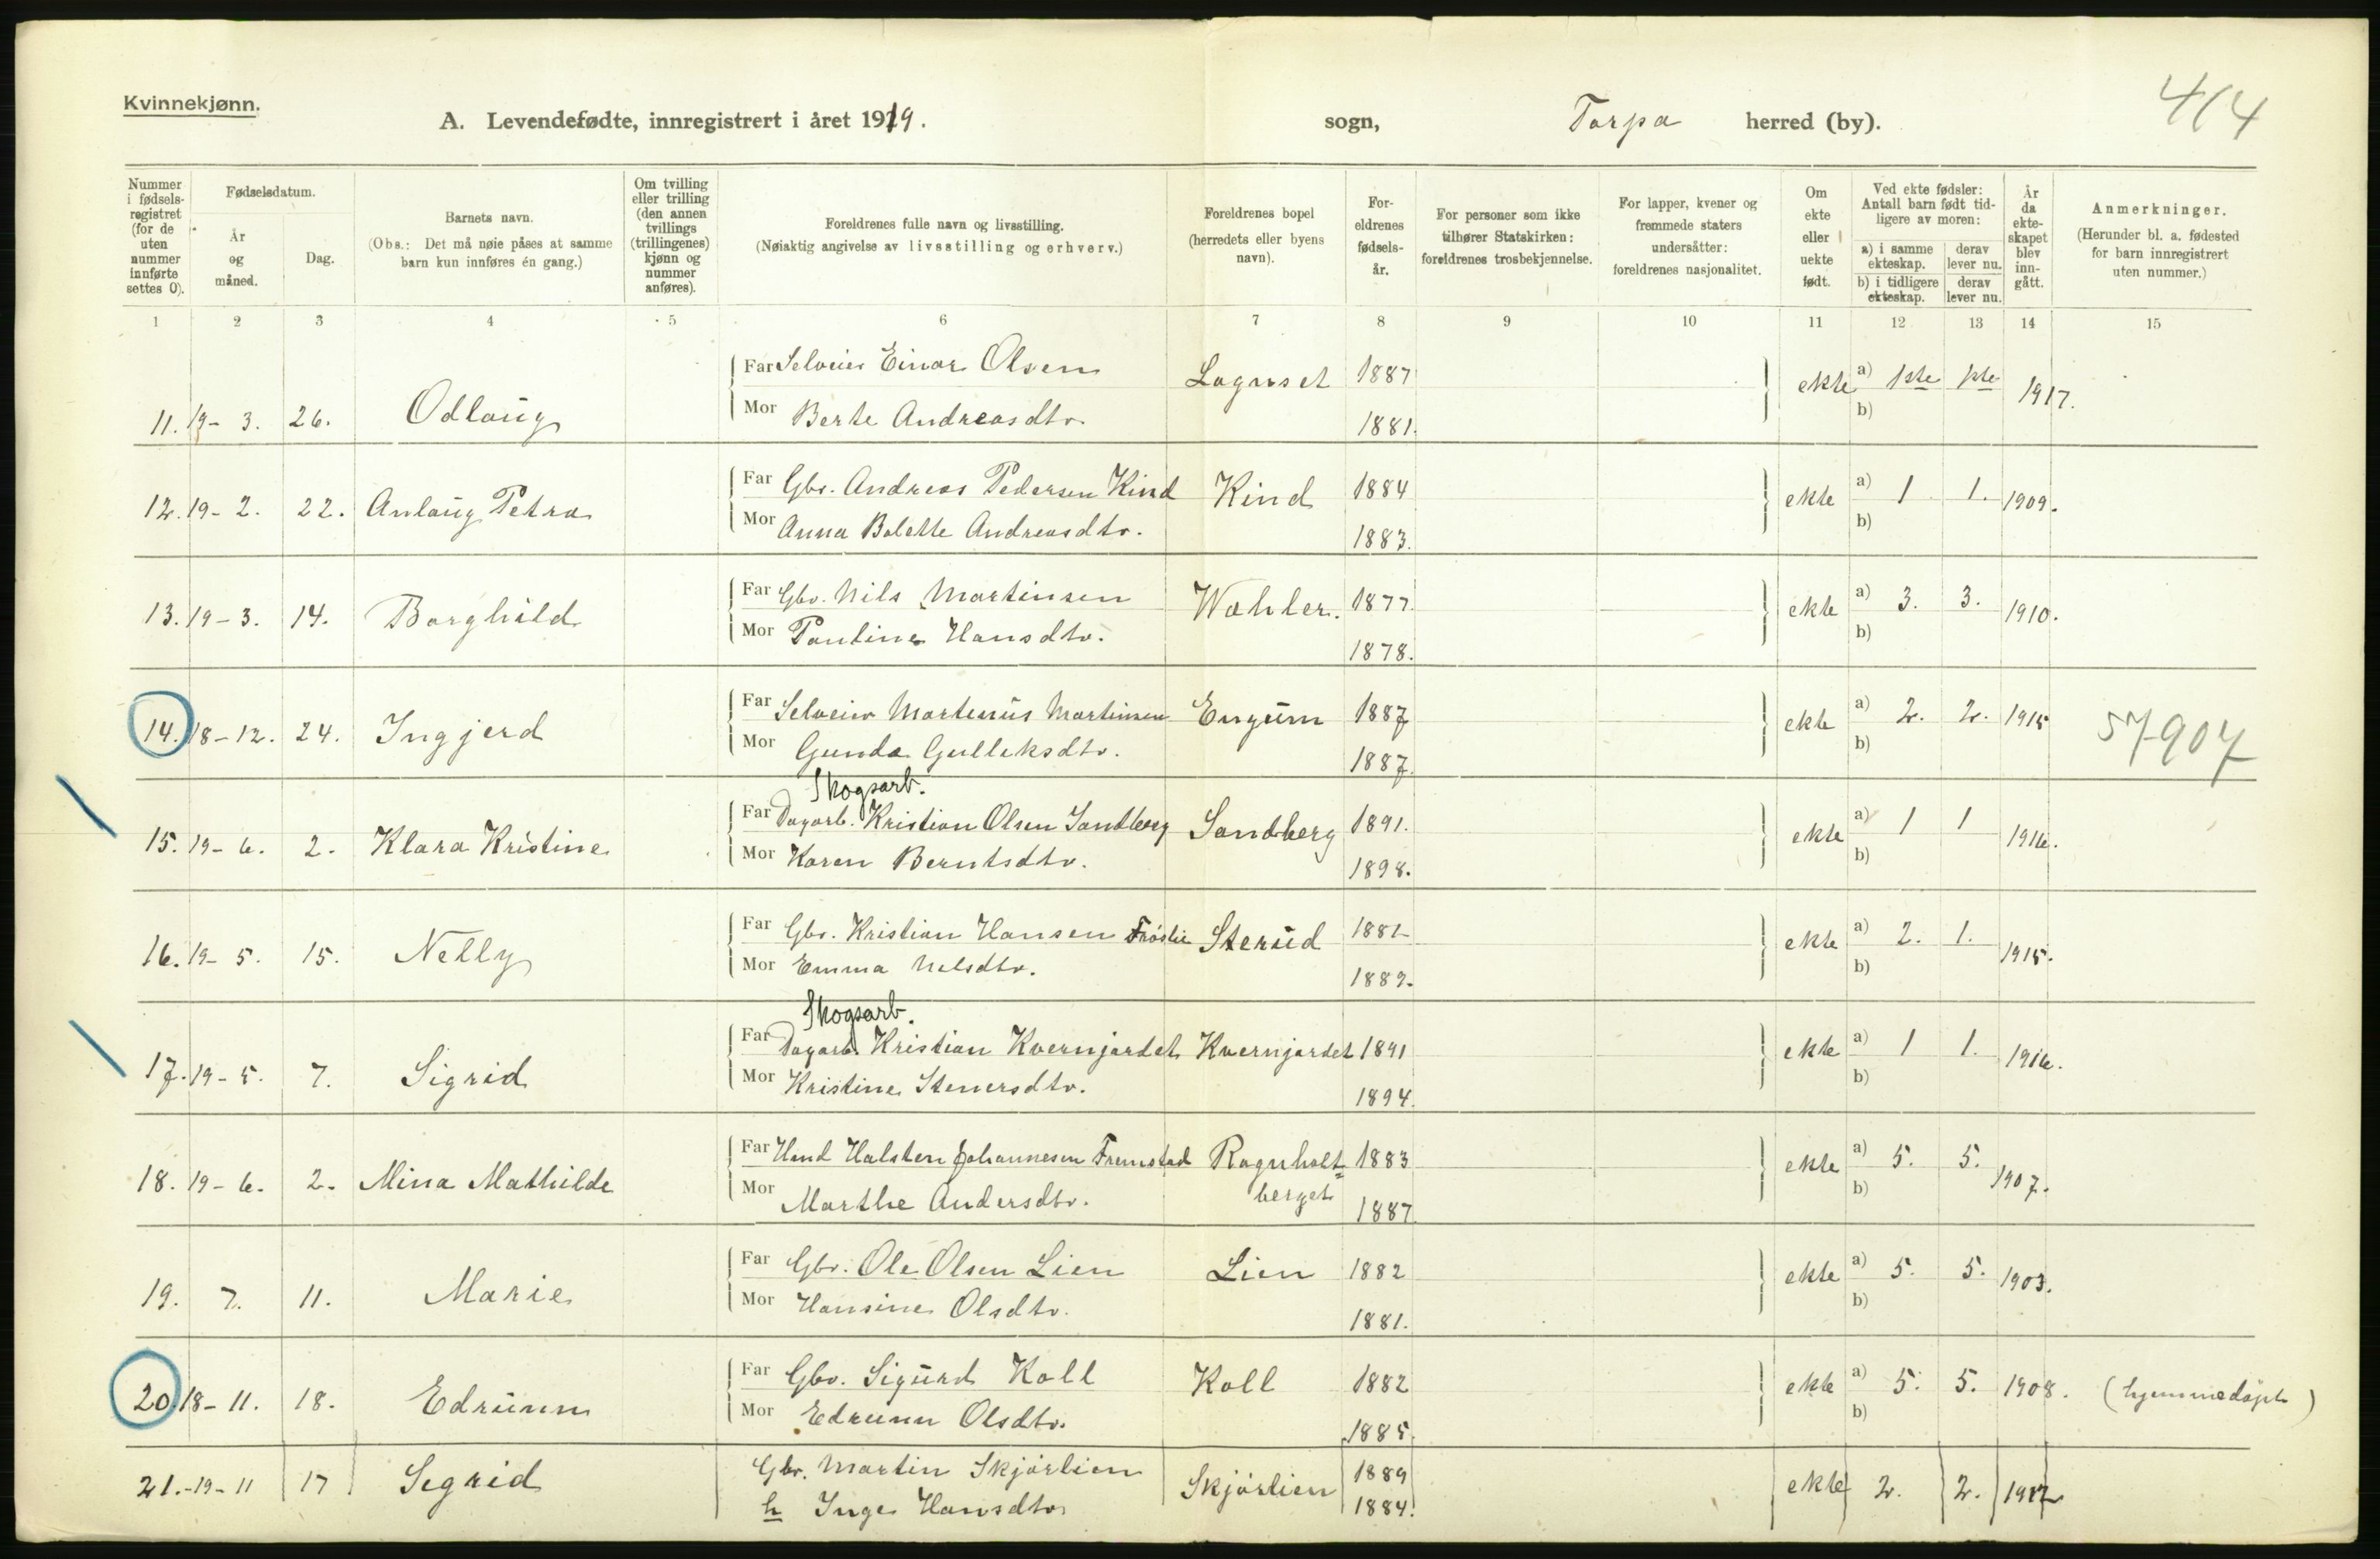 Kvinnekjønn.
A. Levendefødte, innregistrert i året 1919.
sogn, Torpa herred (by).
414
Nummer i fødselsregistret (for de uten nummer innførte settes 0).
Fødselsdatum.
År og måned.
Dag.
Barnets navn.
(Obs.: Det må nøie påses at samme barn kun innføres én gang.)
Om tvilling eller trilling (den annen tvillings (trillingenes) kjønn og nummer anføres).
Foreldrenes fulle navn og livsstilling.
(Nøiaktig angivelse av livsstilling og erhverv.)
Foreldrenes bopel (herredets eller byens navn).
Foreldrenes fødselsår.
For personer som ikke tilhører Statskirken: foreldrenes trosbekjennelse.
For lapper, kvener og fremmede staters undersåtter: foreldrenes nasjonalitet.
Om ekte eller uekte født.
Ved ekte fødsler: Antall barn født tidligere av moren:
a) i samme ekteskap. derav lever nu.
b) i tidligere ekteskap. derav lever nu.
År da ekteskapet blev inngått.
Anmerkninger.
(Herunder bl. a. fødested for barn innregistrert uten nummer.)
1 2 3 4 5 6 7 8 9 10 11 12 13 14 15
11. 19- 3. 26. Odlaug Far Selveier Einar Olsen Lognset 1887 ekte a) 1ste 1ste 1917.
Mor Berte Andreasdtr. 1881. b)
12. 19- 2. 22. Anlaug Petra Far Gbr. Andreas Pedersen Kind Kind 1884 ekte a) 1 1. 1909.
Mor Anna Bolette Andreasdtr. 1883. b)
13. 19-3. 14. Borghild Far Gbr. Nils Martinsen Wøhler. 1877. ekte a) 3. 3. 1910.
Mor Pauline Hansdtr. 1878. b)
14. 18-12. 24. Ingjerd Far Selveier Martenius Martinsen Engum 1887 ekte a) 2. 2. 1915 57907
Mor Gunda Gulleksdtr. 1887. b)
Skogsarb.
15. 19- 6. 2. Klara Kristine Far Dagarb. Kristian Olsen Sandberg Sandberg 1891. ekte a) 1 1 1916.
Mor Karen Berntsdtr. 1898. b)
16. 19- 5. 15. Nelly Far Gbr. Kristian Hansen Frøslie Sterud 1882 ekte a) 2. 1. 1915.
Mor Emma Nilsdtr. 1889. b)
Skogsarb.
17. 19-5. 7. Sigrid Far Dagarb. Kristian Kvernjordet Kvernjordet 1891 ekte a) 1 1. 1916.
Mor Kristine Stenersdtr. 1894. b)
18. 19-6. 2. Mina Mathilde Far Hmd Halsten Johannesen Fremstad Rognholt= 1883 ekte a) 5. 5. 1907.
Mor Marthe Andersdtr. berget 1887. b)
19. 7. 11. Marie Far Gbr. Ole Olsen Lien Lien 1882 ekte a) 5. 5. 1903.
Mor Hansine Olsdtr. 1881. b)
20. 18- 11. 18. Edrunn Far Gbr. Sigurd Koll Koll 1882 ekte a) 5. 5. 1908. (hjemmedøpt)
Mor Edrunn Olsdtr. 1885. b)
21.-19-11 17 Sigrid Gbr. Martin Skjørlien Skjørlien 1889 ekte 2. 2. 1917
h Inge Hansdtr 1884.